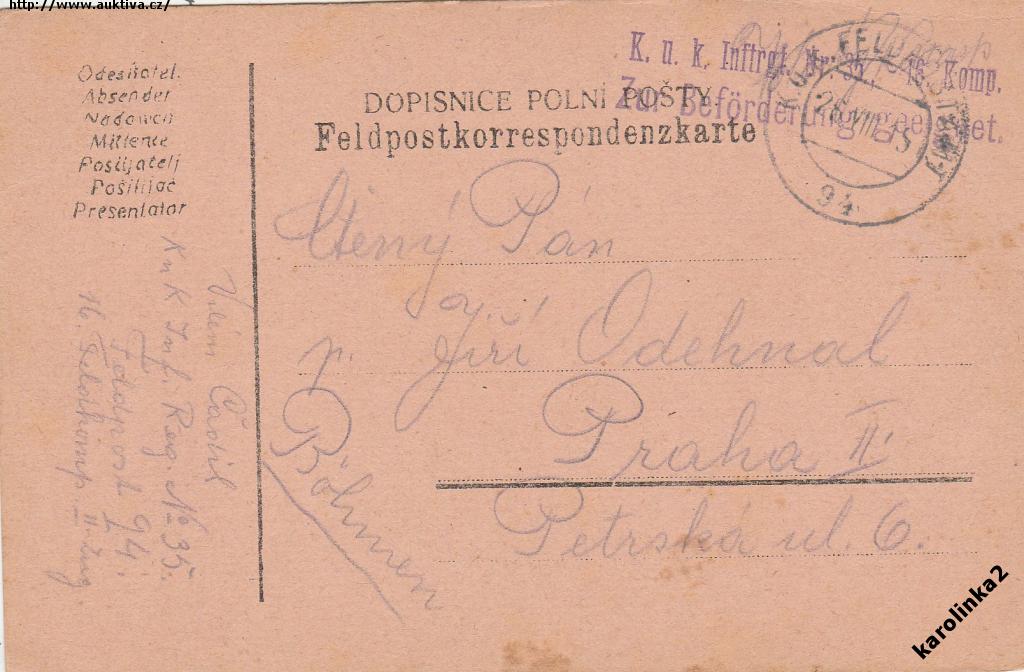 http://www.auktiva.cz/
Odesílatel.
Absender
Nadawca
Mittente
Pošiljatelj
Pošiljač
Presentator
DOPISNICE POLNÍ POŠTY.
Feldpostkorrespondenzkarte
K. u. k. Inftrgt. Nr. 35, 16. Komp.
Zur Beförderung geeignet.
K.u.K. FELDPOSTAMT
26.VIII.15
94
Ctěný Pán
p. Jiří Odehnal
Praha II
Petrská ul. 6.
Böhmen
Vilém Čadil
K u K Inf. Reg. No 35.
Feldpost 94.
16. Feldkomp. II. Zug
karolinka2